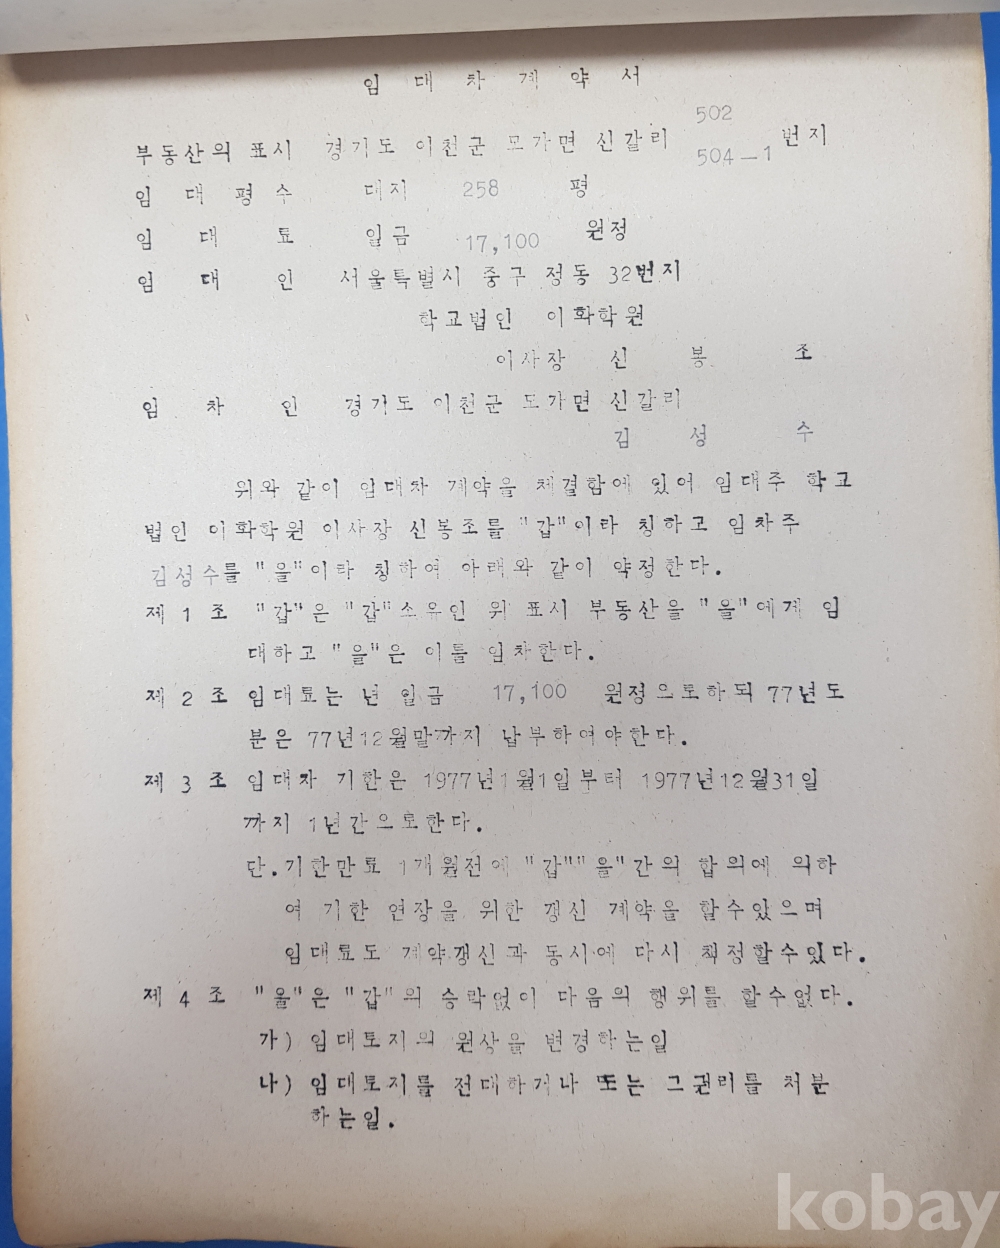 임 대 차 계 약 서
502
부동산의 표시 경기도 이천군 모가면 신갈리 번지
504-1
임 대 평 수 대지 258 평
임 대 료 일금 17,100 원정
임 대 인 서울특별시 중구 정동 32번지
학교법인 이화학원
이사장 신 봉 조
임 차 인 경기도 이천군 모가면 신갈리
김 성 수
위와 같이 임대차 계약을 체결함에 있어 임대주 학교
법인 이화학원 이사장 신봉조를 "갑"이라 칭하고 임차주
김성수를 "을"이라 칭하여 아래와 같이 약정한다.
제 1 조 "갑"은 "갑"소유인 위 표시 부동산을 "을"에게 임
대하고 "을"은 이를 임차한다.
제 2 조 임대료는 년 일금 17,100 원정으로하되 77년도
분은 77년12월말까지 납부하여야한다.
제 3 조 임대차 기한은 1977년1월1일부터 1977년12월31일
까지 1년간으로한다.
단.기한만료 1개월전에 "갑""을"간의 합의에 의하
여 기한 연장을 위한 갱신 계약을 할수있으며
임대료도 계약갱신과 동시에 다시 책정할수있다.
제 4 조 "을"은 "갑"의 승락없이 다음의 행위를 할수없다.
가) 임대토지의 원상을 변경하는일
나) 임대토지를 전대하거나 또는 그권리를 처분
하는일.
kobay